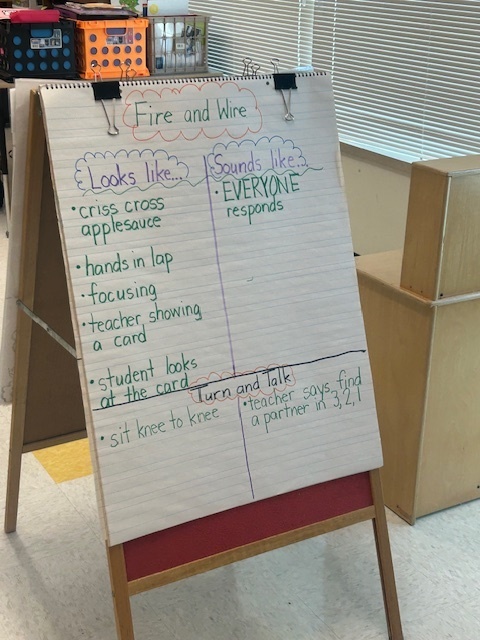 Fire and Wire
Looks like...
• criss cross
applesauce
• hands in lap
• focusing
• teacher showing
a card
• student looks
at the card
Sounds like...
• EVERYONE
responds
Turn and Talk
• sit knee to knee
• teacher says, find
a partner in 3, 2, 1